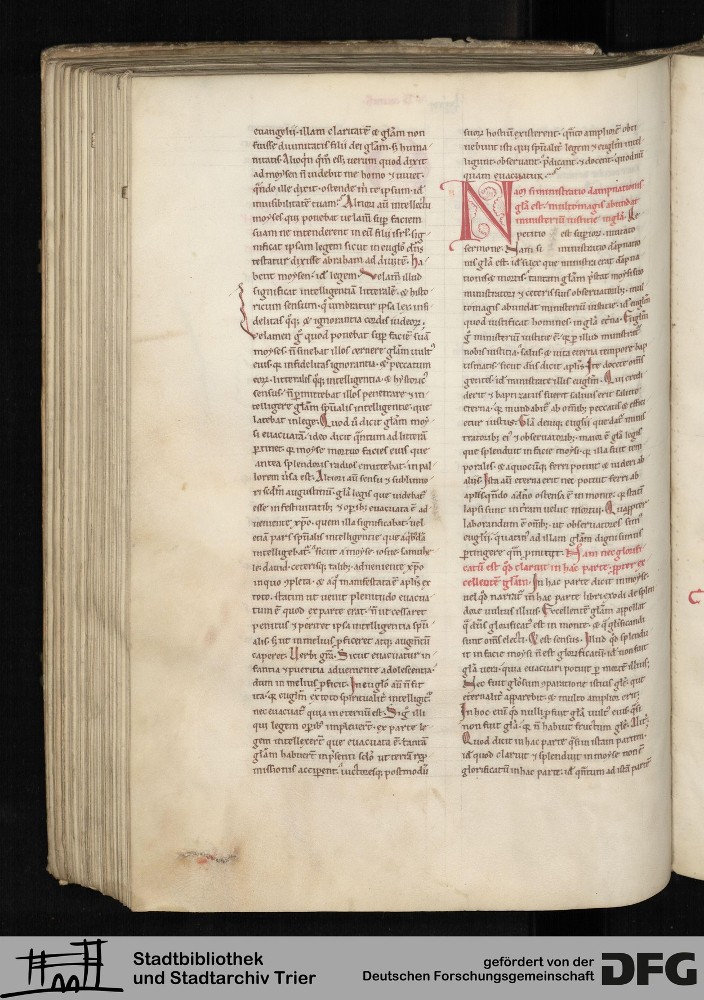 euangelij. illam claritatē & glām non
fuisse diuinitatis filii dei glām. s; huma
nitatis. Alioqn qm ess; uerum quod dixit
ad moysen ñ uidebit me homo & uiuet.
qndo ille dixit. ostende m te ipsum. id
inuisibilitatē tuam. Altiori aū intellectu
moyses qui ponebat uelam sup faciem
suam ne intenderent in eū filii isrl. sig
nificat ipsam legem sicut in euglo dns
testatur dixisse abraham ad diuitē. ha
bent moysen. id legem. Velam illud
significat intelligentiā litteralē. & histo
ricum sensum. q umbratur ipsa lex. infi
delitas qq; & ignorantia cordis iudeor.
Velamen g quod ponebat sup facie suā
moyses. ñ sinebat illos cernere glām uult
eius. q infidelitas ignorantia. & peccatum
eor. litteralis qq; intelligentia. & hystoric
sensus. ñ pmittebat illos penetrare & in
telligere glām spualis intelligentie. que
latebat in lege. Quod ñ dicit glām moy
si euacuatā. ideo dicit qntum ad litterā
ptinet. q moyse mortuo facies eius que
antea splendoris radios emittebat. in pal
lorem usa est. Altiori aū sensu & sublimo
ri scdm augustinū. glā legis que uidebat
esse in festiuitatib; & opib; euacuata ē ad
ueniente xpo. quem illa significabat. uel
etiā pars spualis intelligentie que aqbdā
intelligebat. sicut a moyse. iosue. samuhe
le. dauid. ceterisq; talib;. adueniente xpo
in quo opleta. & a q manifestata ē aplis ex
toto. statim ut uenit plenitudo euacua
tum ē quod ex parte erat. ñ ut cessaret
penitus & periret ipsa intelligentia spu
alis. s; ut in melius pficeret atq; augmtū
caperet. Verbi gra. Sicut euacuatur in
fantia & pueritia adueniente adolescentia.
dum in melius pficit. In euglo aū ñ sit
ita. q; euglm ex toto spiritualit intelligit.
nec euacuat quia in eternū est. Sig illi
qui legem opib; impleuert. & ex parte le
gem intellexert que euacuata ē. tantā
glam habuert in psenti sclo. ut terrā rep
missionis acciperent. uictoresq; postmodū
suor hostiū existerent. qnto ampliorē obti
nebunt isti qui spualit legem & euglm intel
ligunt. obseruant. pdicant. & docent. quod nū
quam euacuatur.
Nam si ministratio dampnationis
glā est. multo magis abundat
ministeriū iusticie in glā. Re
petitio est supior. mutato
sermone. Nam si ministratio dapnatio
nis glā est. id si lex que ministra erat dapna
tionis & mortis. tantam glām pstat moysi suo
ministratori & ceteris suis obseruatorib;. mul
to magis abundat ministeriū iusticie. id euglm
quod iustificat homines. in glā etna. Euglm
g ministeriū iusticie ē. q p illud ministrat
nobis iusticia. salus & uita eterna tempore bap
tismatis. sicut dns dicit aplis. Ite docete oms
gentes. id ministrate illis euglm. Qui credi
derit & baptizatus fuerit saluus erit salute
eterna. q mundabit ab omib; peccatis & effici
etur iustus. Glā deniq; euglii que dat minis
tratorib; ei & obseruatorib;. maior ē glā legis
que splenduit in facie moysi. q illa fuit tem
poralis. & a quocūq; ferri potuit & uideri ab
aliis. Ista aū eterna erit nec potuit ferri ab
aplis. qndo a dno ostensa ē in monte. q statī
lapsi sunt in terram uelut mortui. Quapropter
laborandum ē omib; ut obseruatores simus
euglii. quatin ad illam glām digni simus
ptingere. qm pmittit. Nam nec glorifi
catū est qd claruit in hac parte. ppter ex
cellentē glam. In hac parte dicit in moyse.
nel qd narrat in hac parte libri exodi de splen
dore uultus illius. Excellentē glām appellat
q dns glorificat est in monte. & q glificandi
sunt oms electi. & est sensus. Illud qd splendu
it in facie moysi ñ est glorificatū. id non fuit
glā uera. quia euacuari potuit p mortē illius;
Nec fuit gliosum oparatione istius glē. que
eternalit apparebit. & multo amplior erit.
In hoc etiā qd null pfuit glā uult eius. qsi
non fuit glā. q ñ habuit fructum gle. Alit.
Quod dicit in hac parte qsi in istam partem.
id quod claruit & splenduit in moyse non ē
glorificatū in hac parte. id qntum ad istā partē
Stadtbibliothek
und Stadtarchiv Trier
gefördert von der
Deutschen Forschungsgemeinschaft
DFG